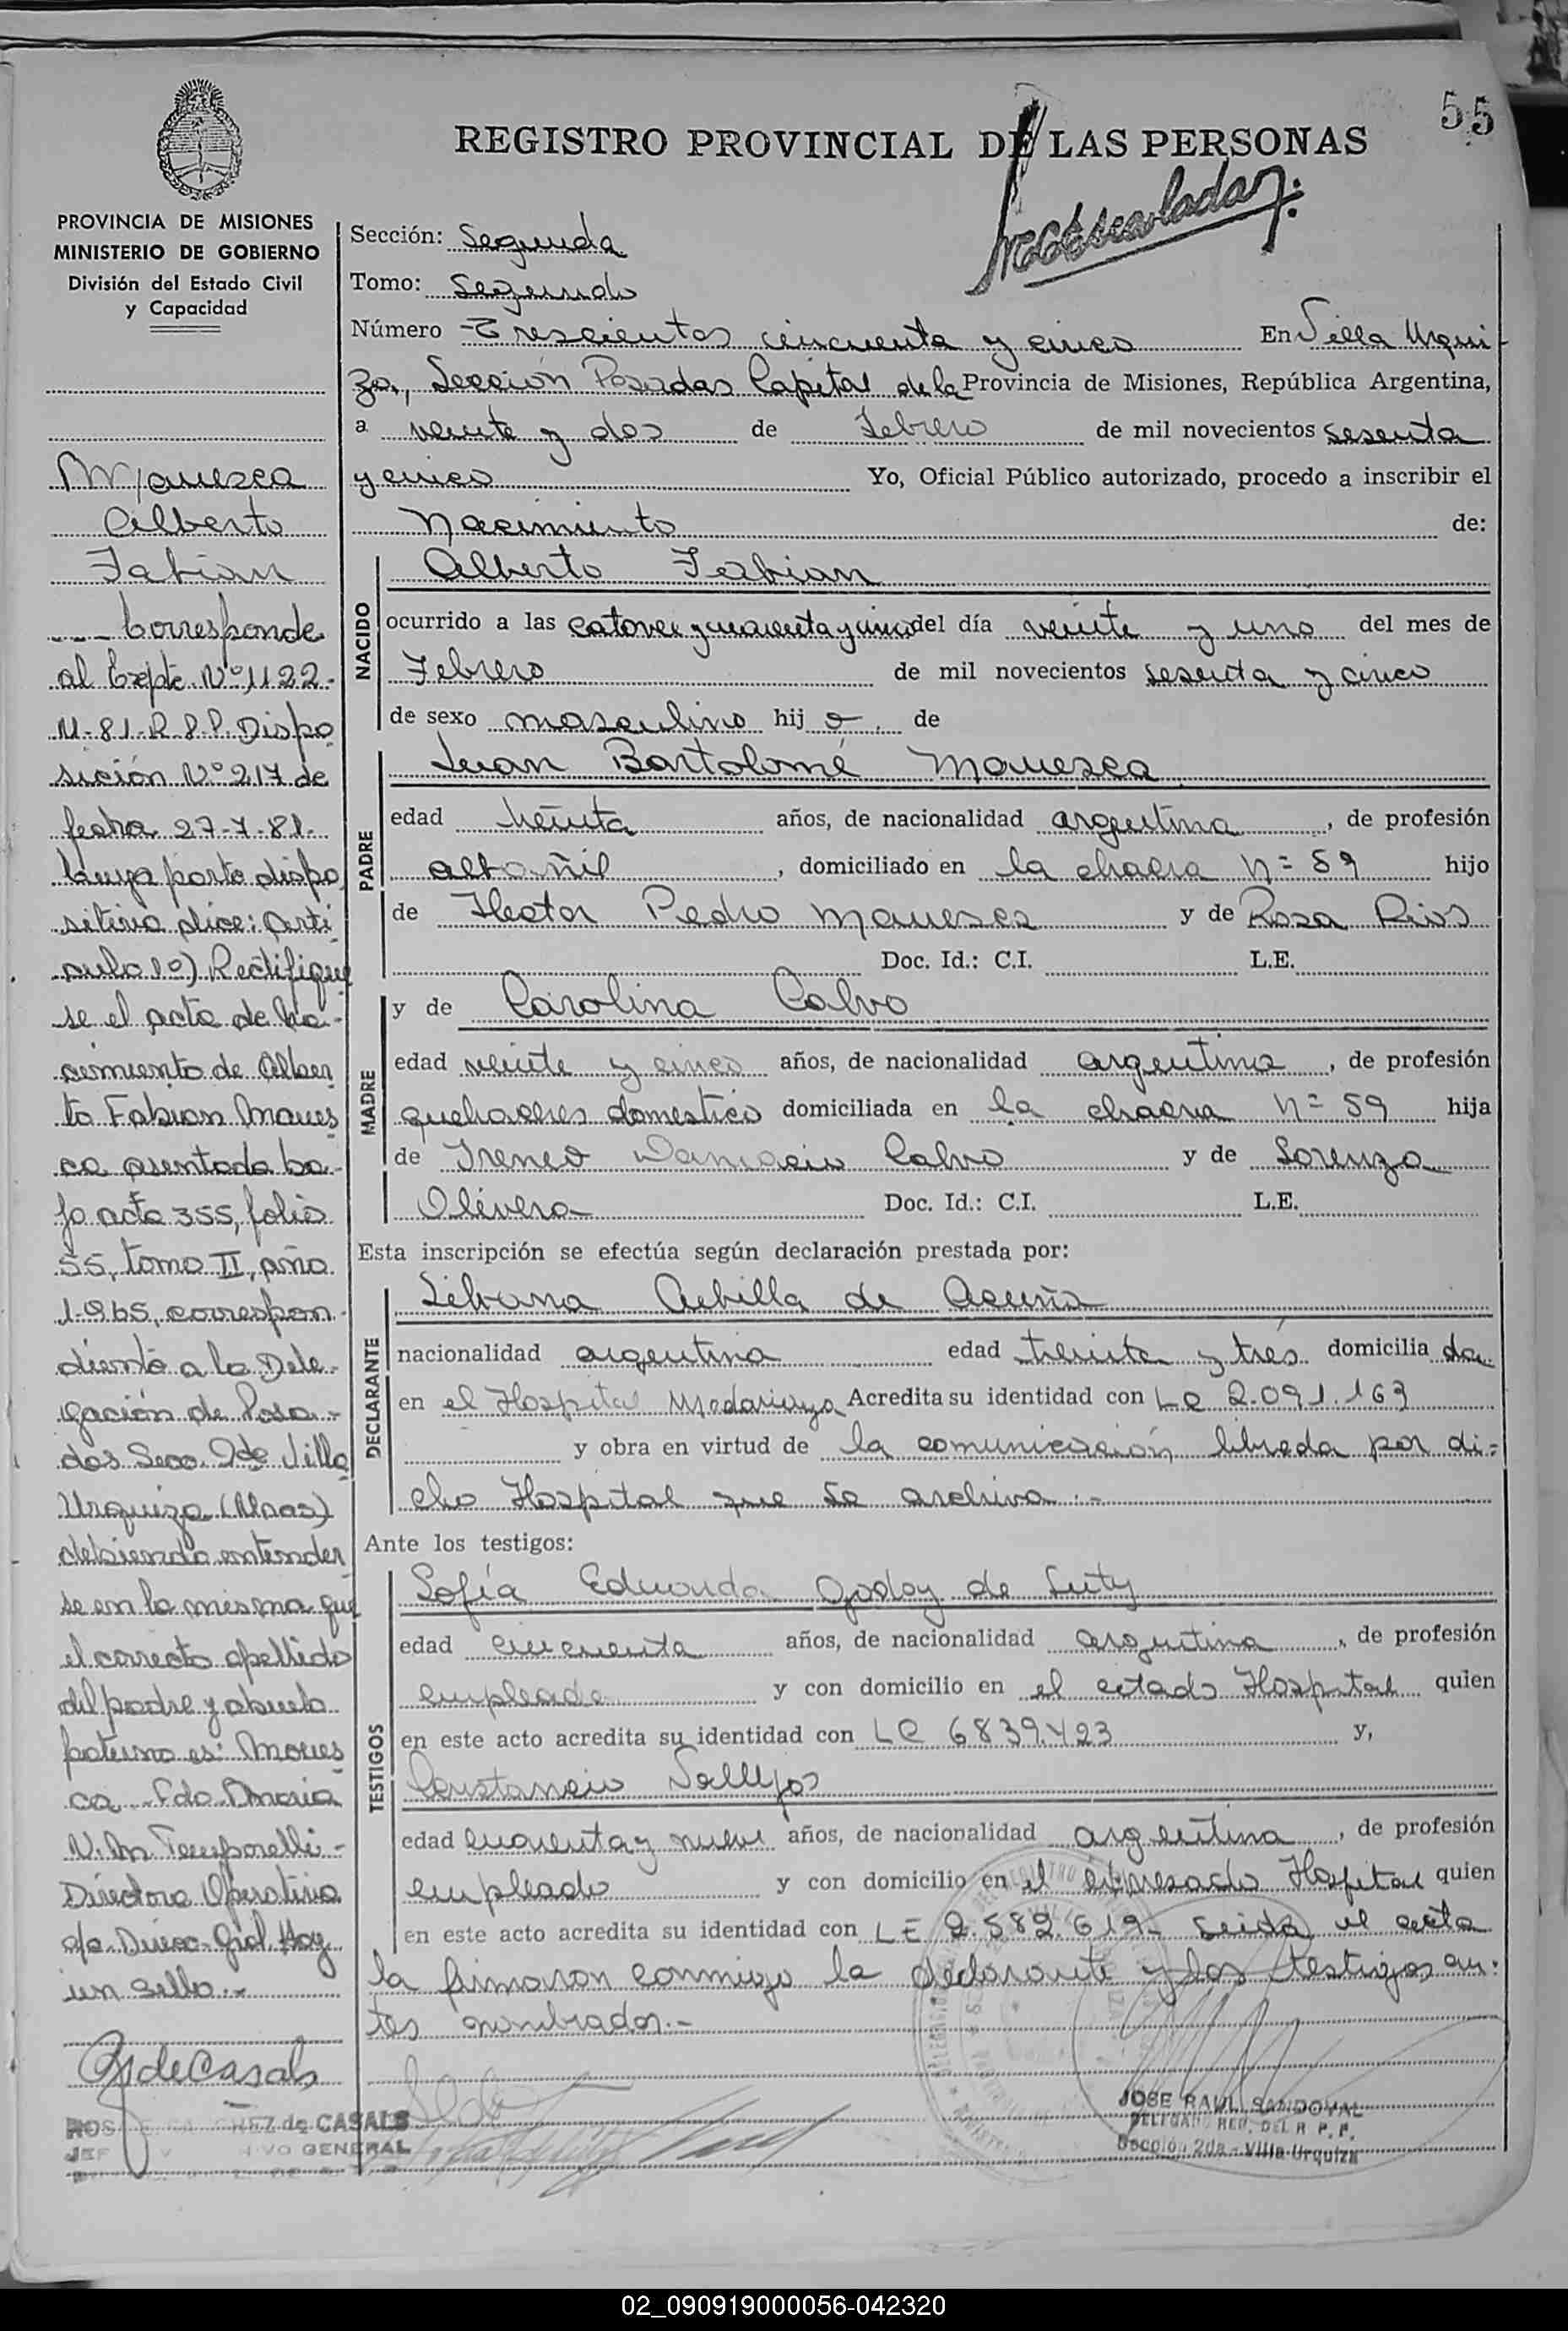 55
REGISTRO PROVINCIAL DE LAS PERSONAS
PROVINCIA DE MISIONES
MINISTERIO DE GOBIERNO
División del Estado Civil
y Capacidad
Manesca
Alberto
Fabian
--- Corresponde
al Expte. Nº 1122-
M-81-R.P.P. Dispo
sición Nº 217 de
fecha 27-7-81.
Cuya parte dispo
sitiva dice: Arti
culo 1º) Rectifique
se el acta de Na-
cimiento de Alber
to Fabian Manes
ca asentada ba-
jo acta 355, folio
55, tomo II, año
1.965, correspon-
diente a la Dele-
gación de Posa-
das Secc. 2da Villa
Urquiza (Mnes)
debiendo entender
se en la misma que
el correcto apellido
del padre y abuelo
paterno es: Manes
ca - Fdo. Maria
Temporelli-
Directora Operativa
a/c. Direc. Gral. Hay
un sello.-
de Casals
de CASALS
GENERAL
Sección: Segunda
Tomo: Segundo
Número Trescientos cincuenta y cinco En Villa Urqui-
za, Sección Posadas Capital de la Provincia de Misiones, República Argentina,
a veinte y dos de Febrero de mil novecientos sesenta
y cinco Yo, Oficial Público autorizado, procedo a inscribir el
Nacimiento de:
NACIDO
Alberto Fabian
ocurrido a las catorce y cuarenta y cinco del día veinte y uno del mes de
Febrero de mil novecientos sesenta y cinco
de sexo masculino hijo. de
PADRE
Juan Bartolomé Manesca
edad treinta años, de nacionalidad argentina, de profesión
albañil, domiciliado en la chacra Nº 59 hijo
de Hector Pedro Manesca y de Rosa Rios
Doc. Id.: C.I. L.E.
MADRE
y de Carolina Calvo
edad veinte y cinco años, de nacionalidad argentina, de profesión
quehaceres domestico domiciliada en la chacra Nº 59 hija
de Ireneo Damacio Calvo y de Lorenza
Olivera Doc. Id.: C.I. L.E.
Esta inscripción se efectúa según declaración prestada por:
DECLARANTE
Silvana de Acuña
nacionalidad argentina edad treinta y tres domiciliada
en el Hospital Madariaga Acredita su identidad con LC 2.091.163
y obra en virtud de la comunicación librada por di-
cho Hospital que se archiva.-
Ante los testigos:
TESTIGOS
Sofía Eduarda Godoy de Luty
edad cincuenta años, de nacionalidad argentina, de profesión
empleada y con domicilio en el citado Hospital quien
en este acto acredita su identidad con LC 6839.423 y,
Constancio Vallejos
edad cuarenta y nueve años, de nacionalidad argentina, de profesión
empleado y con domicilio en el expresado Hospital quien
en este acto acredita su identidad con LE 2.582.619- Leida el acta
la firmaron conmigo la declarante y los testigos an-
tes nombrados.-
JOSE RAUL SANDOVAL
DELEGADO REG. DEL R. P. P.
Sección 2da - Villa Urquiza
02_090919000056-042320